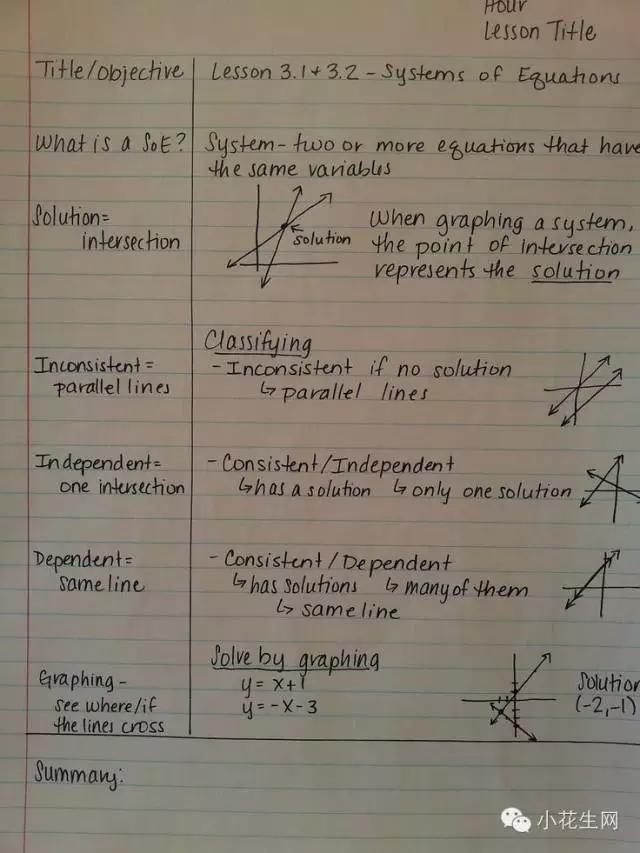 Hour
Lesson Title
Title/Objective
Lesson 3.1 + 3.2 - Systems of Equations
What is a SoE?
System- two or more equations that have
the same variables
Solution=
intersection
solution
When graphing a system,
the point of intersection
represents the solution
Classifying
Inconsistent=
parallel lines
- Inconsistent if no solution
↳ parallel lines
Independent=
one intersection
- Consistent/Independent
↳ has a solution ↳ only one solution
Dependent=
same line
- Consistent/Dependent
↳ has solutions ↳ many of them
↳ same line
Graphing-
see where/if
the lines cross
Solve by graphing
y = x+1
y = -x-3
Solution
(-2,-1)
Summary:
小花生网